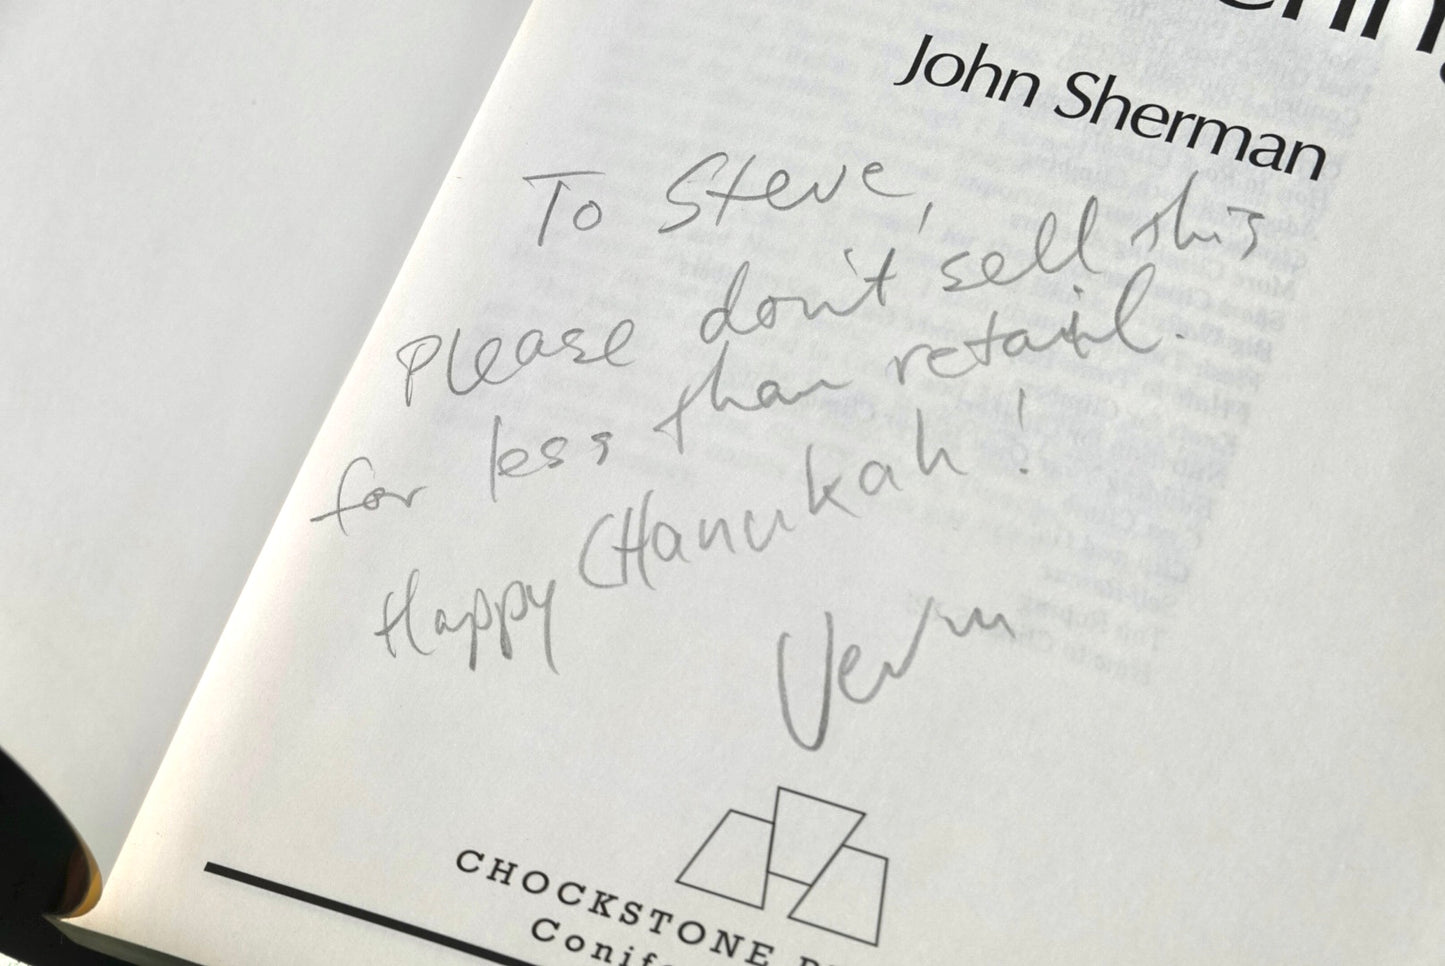 John Sherman
To Steve,
please don't sell this
for less than retail.
Happy CHanukah!
Verm
CHOCKSTONE